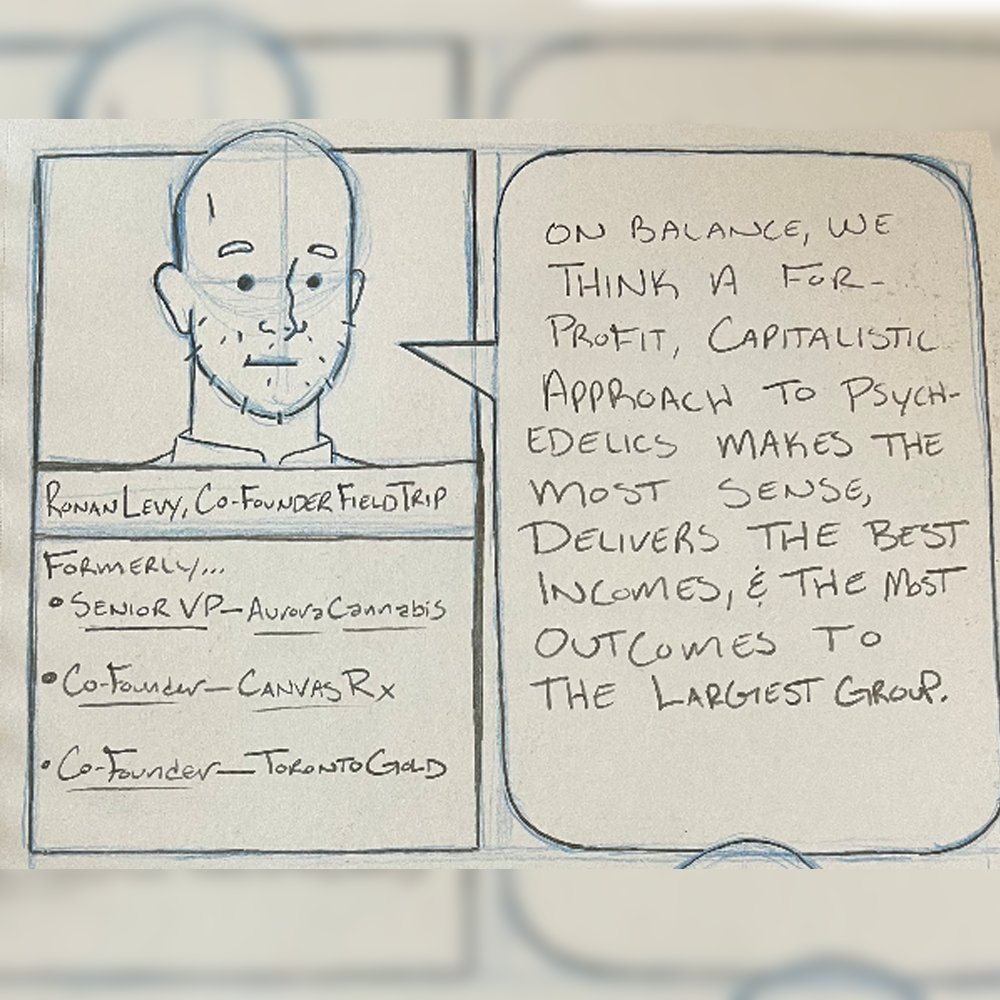 RONAN LEVY, CO-FOUNDER FIELD TRIP
FORMERLY...
• SENIOR VP – Aurora Cannabis
• Co-Founder – CANVAS Rx
• Co-Founder – TORONTO GOLD
ON BALANCE, WE
THINK A FOR-
PROFIT, CAPITALISTIC
APPROACH TO PSYCH-
EDELICS MAKES THE
MOST SENSE,
DELIVERS THE BEST
INCOMES, & THE MOST
OUTCOMES TO
THE LARGEST GROUP.